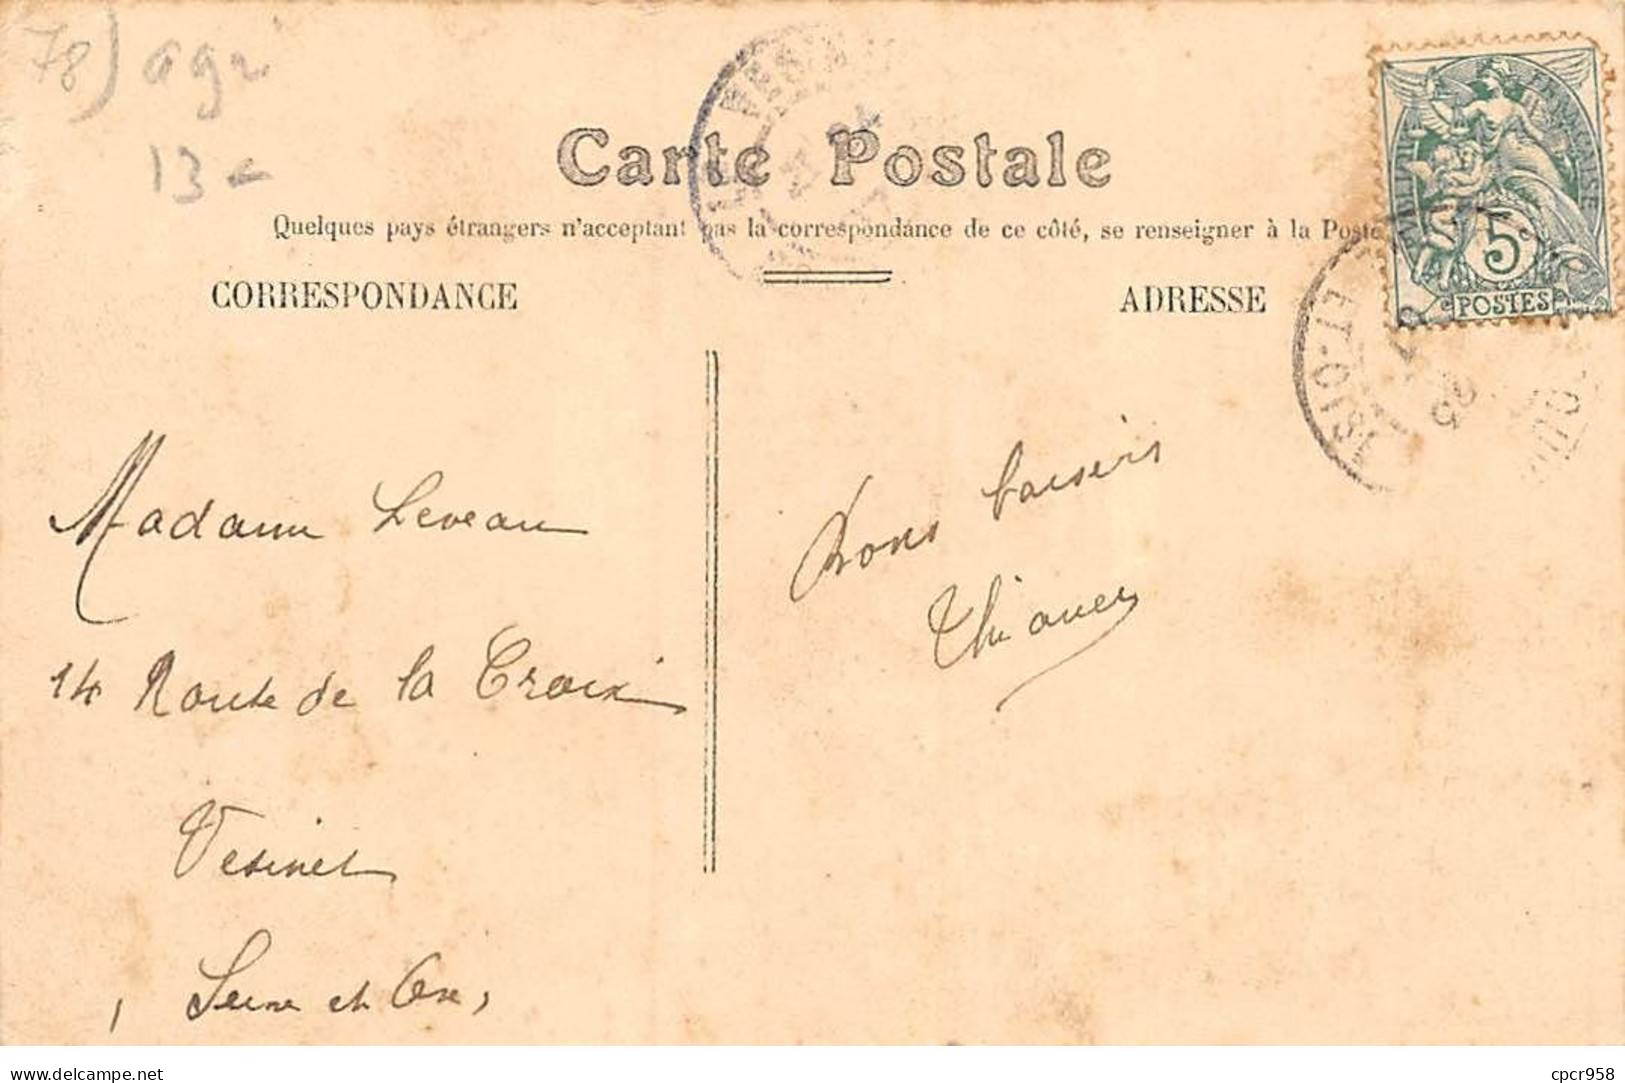 78) agr
13
Carte Postale
Quelques pays étrangers n'acceptant pas la correspondance de ce côté, se renseigner à la Poste
CORRESPONDANCE
ADRESSE
REPUBLIQUE FRANÇAISE
5
POSTES
ET-OISE
Madame Leveau
14 Route de la Croix
Vesinet
Seine et Oise
Bons baisers
delcampe.net
cpcr958